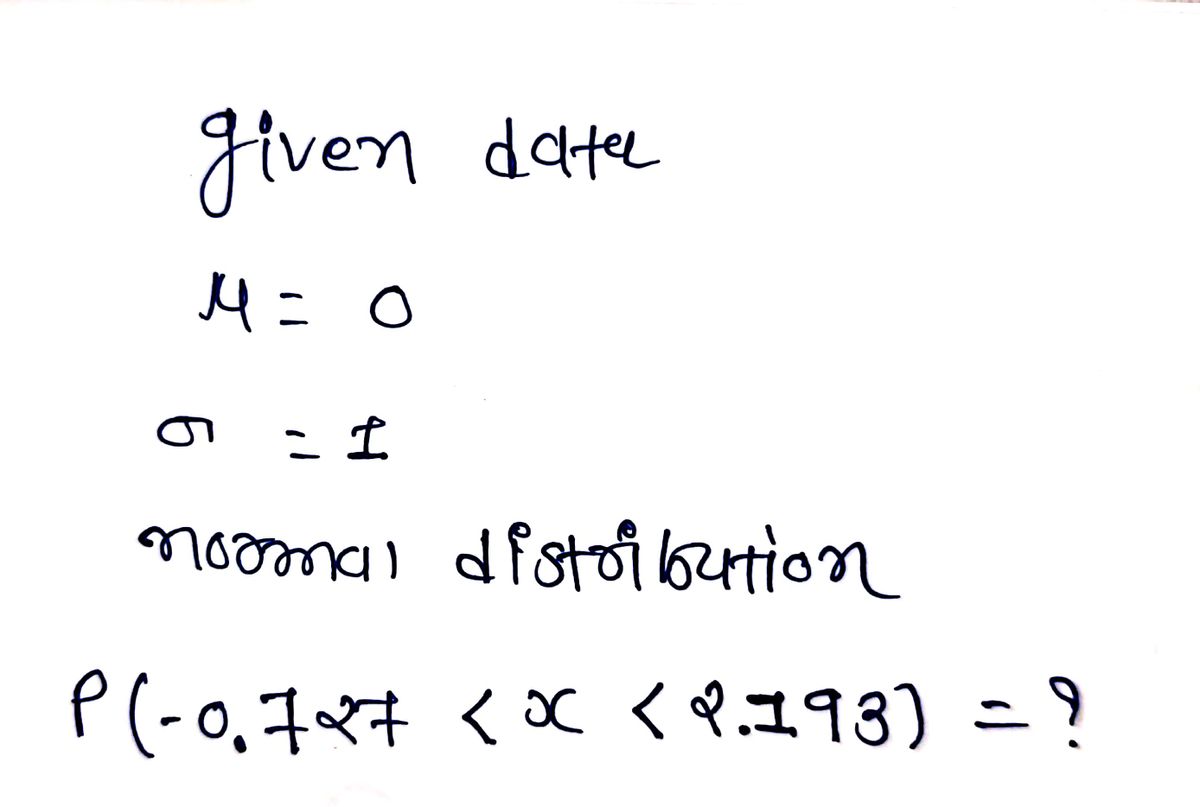 given data
μ = 0
σ = 1
normal distribution
P(-0.727 < x < 2.193) = ?